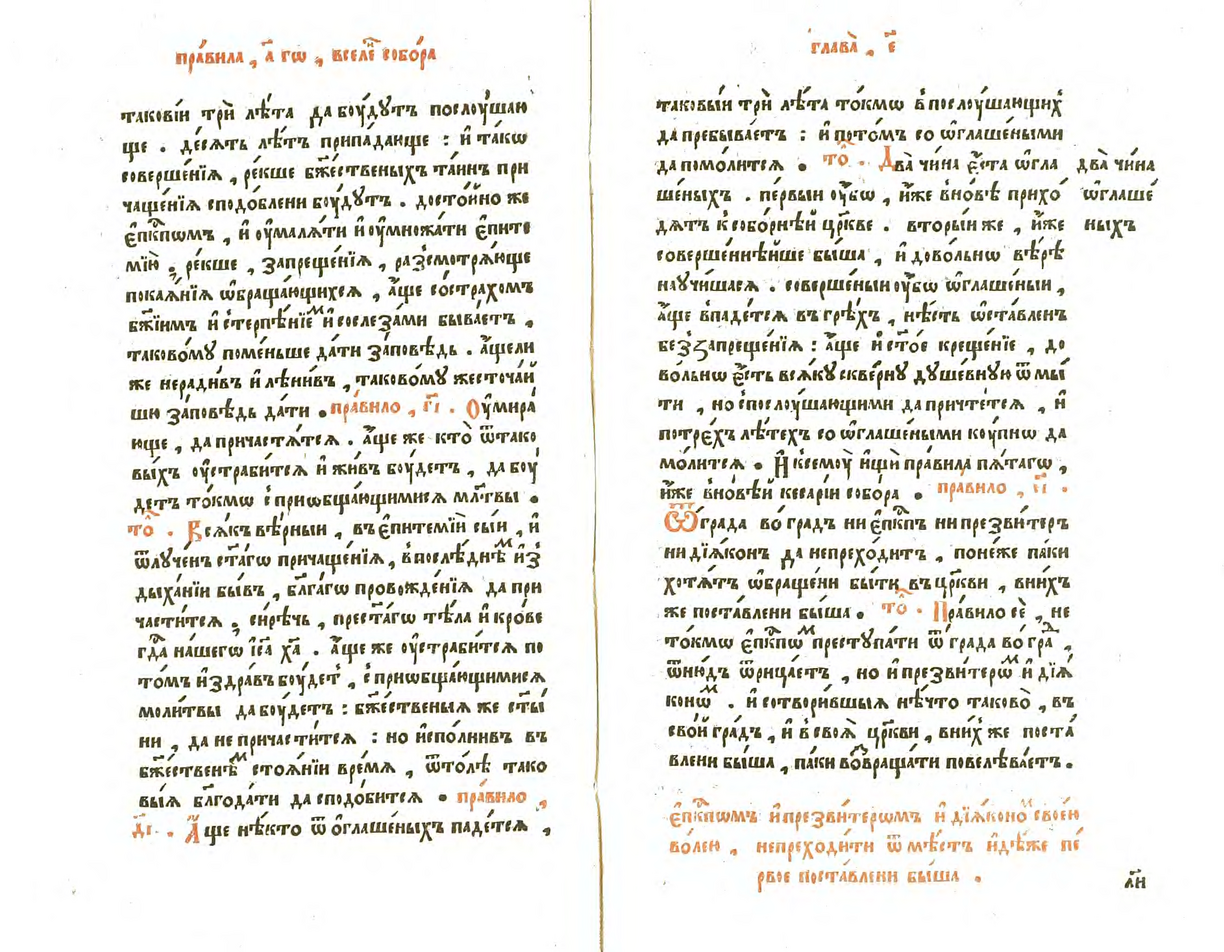 пра́вила , а҃ гѡ , вселе́ⷩ собо́ра
такові́и трѝ лѣ́та да бꙋ́дꙋтъ послꙋ́шаю
ще . де́сѧть лѣ́тъ припа́дающе : и҆ та́кѡ
соверше́нїѧ , ре́кше бж҃е́ственыхъ та́инъ при
чаще́нїѧ сподо́блени бꙋ́дꙋтъ . досто́йно же
є҆пкⷭ҇пѡмъ , и҆ ᲂу҆малѧ́ти и҆ ᲂу҆множа́ти є҆пите
мїю̀ , ре́кше , запреще́нїѧ , разсмотрѧ́юще
покаѧ́нїѧ ѡ҆браща́ющихсѧ , а҆́ще со стра́хомъ
бж҃їимъ и҆ с терпѣ́нїеⷨ и҆ со слеза́ми быва́етъ ,
таково́мꙋ поме́ньше да́ти за́повѣдь . а҆́щели
же неради́въ и҆ лѣни́въ , таково́мꙋ жесточа́й
шꙋ за́повѣдь да́ти . пра́вило , г҃і . Оу҆мира́
юще , да причастѧ́тсѧ . а҆́ще же кто̀ ѿ тако
вы́хъ ᲂу҆стра́битсѧ и҆ жи́въ бꙋ́детъ , да бꙋ́
детъ то́кмѡ с приѡбща́ющимисѧ мл҃твы .
то́ⷧ . Всѧ́къ вѣ́рныи , въ є҆питемїи́ сы́и , и҆
ѿлꙋ́ченъ ст҃а́гѡ причаще́нїѧ , в послѣ́днѣⷨ и҆з̾
дыха́нїи бы́въ , бл҃га́гѡ провожде́нїѧ да при
части́тсѧ , си́рѣчь , прест҃а́гѡ тѣ́ла и҆ кро́ве
гдⷭ҇а на́шегѡ і҆сⷭ҇а хрⷭ҇та̀ . а҆́ще же ᲂу҆стра́битсѧ по
то́мъ и҆ здра́въ бꙋ́детъ , с приѡбща́ющимисѧ
моли́твы да бꙋ́детъ : бж҃е́ственыѧ же ст҃ы́
ни , да не причасти́тсѧ : но и҆спо́лнивъ въ
бж҃е́ственѣⷨ стоѧ́нїи вре́мѧ , ѿто́лѣ тако
вы́ѧ бл҃года́ти да сподо́битсѧ . пра́вило ,
д҃і . А҆́ще нѣ́кто ѿ ѡ҆глаше́ныхъ паде́тсѧ ,
глава̀ , є҃
таковы́и трѝ лѣ́та то́кмѡ в послꙋ́шающих
да пребыва́етъ : и҆ пото́мъ со ѡ҆глаше́ными
да помо́литсѧ . то́ⷧ . Два̀ чи́на є҆́ста ѡ҆гла
ше́ныхъ . пе́рвыи ᲂу҆́бѡ , и҆́же вно́вѣ прихо́
дѧтъ к собо́рнѣй цр҃кве . вторы́и же , и҆́же
соверше́ннѣйше бы́ша , и҆ дово́льнѡ вѣ́рѣ
наꙋчи́шасѧ . соверше́ныи ᲂу҆́бѡ ѡ҆глаше́ныи ,
а҆́ще впаде́тсѧ въ грѣ́хъ , нѣ́сть ѡ҆ста́вленъ
без̾ запреще́нїѧ : а҆́ще и҆ ст҃о́е креще́нїе , до
во́льнѡ є҆́сть всѧ́кꙋ скве́рнꙋ дꙋше́внꙋю ѿмы́
ти , но с послꙋ́шающими да причте́тсѧ , и҆
по тре́хъ лѣ́техъ со ѡ҆глаше́ными кꙋ́пнѡ да
мо́литсѧ . И҆ к семꙋ̀ и҆щѝ пра́вила пѧ́тагѡ ,
и҆́же в но́вѣй кесарі́и собо́ра . пра́вило , є҃і .
Ѿ гра́да во гра́дъ ни є҆пкⷭ҇пъ ни презви́теръ
ни дїѧ́конъ да не прехо́дитъ , поне́же па́ки
хотѧ́тъ ѡ҆браще́ни бы́ти въ цр҃кви , в ни́хъ
же поста́влени бы́ша . то́ⷧ . Пра́вило сѐ , не
то́кмѡ є҆пкⷭ҇пѡⷨ престꙋпа́ти ѿ гра́да во граⷣ ,
ѿню́дъ ѿрица́етъ , но и҆ презви́терѡⷨ и҆ дїѧ́
конѡⷨ . и҆ сотвори́вшыѧ нѣ́что таково̀ , въ
сво́й гра́дъ , и҆ в своѧ̀ цр҃кви , в ни́хже поста́
влени бы́ша , па́ки возвраща́ти повелѣва́етъ .
два̀ чи́на
ѡ҆глаше́
ныхъ
є҆пкⷭ҇пѡмъ и҆ презви́терѡмъ и҆ дїѧ́кономъ свое́ю
во́лею , не прехо́дити ѿ мѣ́стъ и҆дѣ́же пе́
рвое поста́влени бы́ша .
л҃и